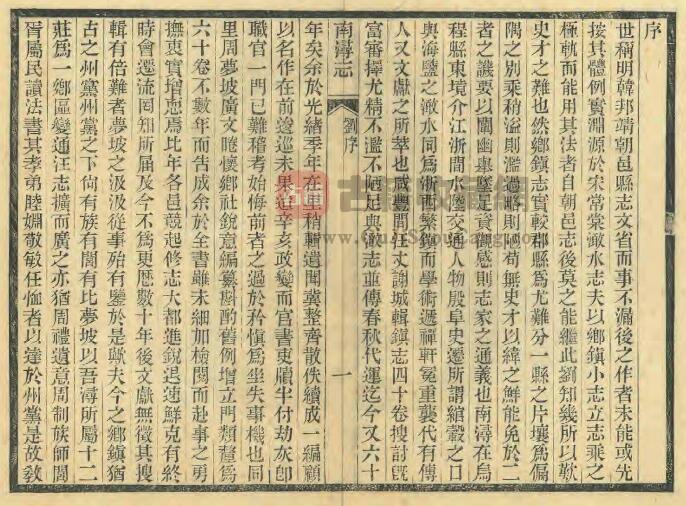 序
世稱明韓邦靖朝邑縣志文省而事不漏後之作者未能或先
按其體例實淵源於宋常棠澉水志夫以鄉鎮小志立志乘之
極軌而能用其法者自朝邑志後莫之能繼此劉知幾所以歎
史才之難也然鄉鎮志實較郡縣爲尤難分一縣之片壤爲偏
隅之別乘稍溢則濫過略則陋苟無史才以緯之鮮能免於二
者之譏要以闡幽舉墜足資觀感則志家之通義也南潯在烏
程縣東境介江浙間水陸交通人物殷阜史遷所謂綰轂之口
與海鹽之澉水同爲浙西繁鎮而學術遞禪軒冕重襲代有傳
人又文獻之所萃也咸豐間汪丈謝城輯鎮志四十卷搜討旣
富審擇尤精不濫不陋足與澉志並傳春秋代運迄今又六十
南潯志
劉序
一
年矣余於光緒季年在里稍輯遺聞冀整齊散佚續成一編顧
以名作在前逡巡未果迨辛亥政變而官書吏牘半付劫灰卽
職官一門已難稽考始悔前者之過於矜愼爲坐失事機也同
里周夢坡廣文睠懷鄉社銳意編纂斟酌舊例增立門類釐爲
六十卷不數年而告成余於全書雖未細加檢閱而赴事之勇
撫衷實增恧焉比年各邑競起修志大都進銳退速鮮克有終
時會遷流罔知所屆及今不爲更歷數十年後文獻無徵其搜
輯有倍難者夢坡之汲汲從事殆有鑒於是歟夫今之鄉鎮猶
古之州黨州黨之下尙有族有閭有比夢坡以吾潯所屬十二
莊爲一鄉區變通汪志擴而廣之亦猶周禮遺意周制族師閭
胥屬民讀法書其孝弟睦婣敬敏任恤者以達於州黨是故敎
古籍收藏網
www.GuJiShouCang.com